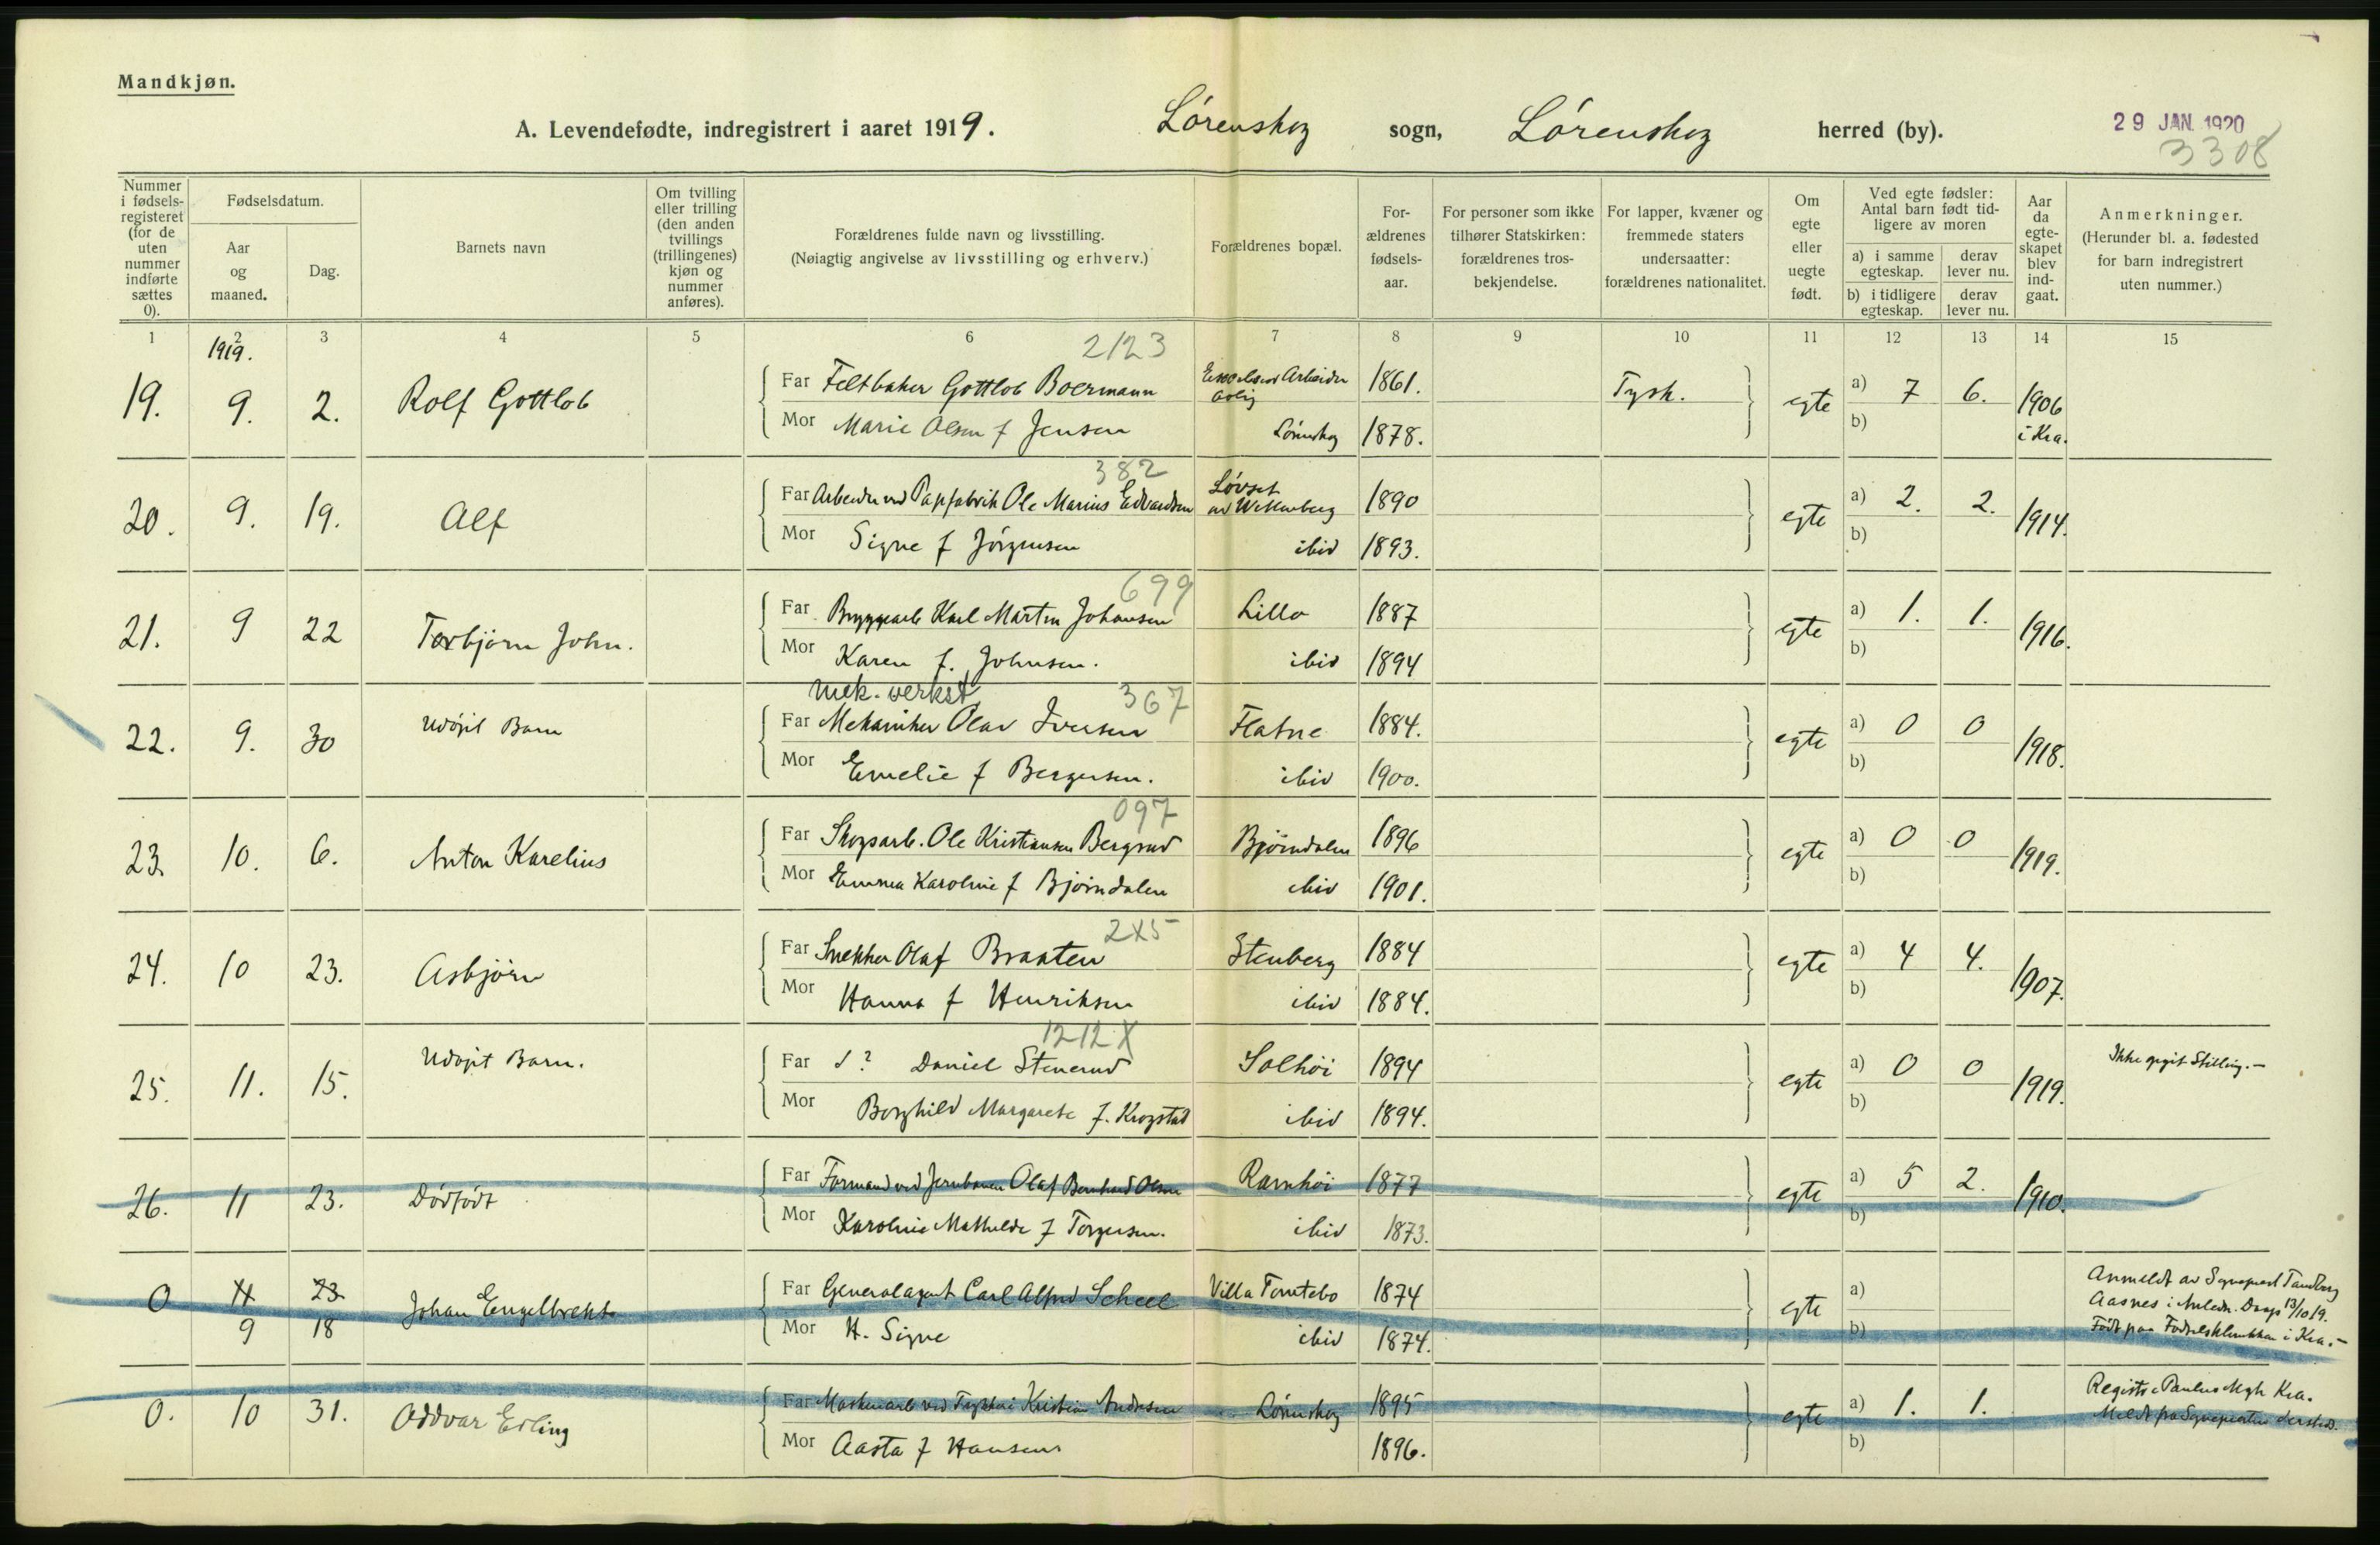 Mandkjøn.
A. Levendefødte, indregistrert i aaret 1919. Lørenskog sogn, Lørenskog herred (by).
29 JAN. 1920
3308
Nummer i fødsels-registeret (for de uten nummer indførte sættes 0).
Fødselsdatum.
Aar og maaned.
Dag.
Barnets navn
Om tvilling eller trilling (den anden tvillings (trillingenes) kjøn og nummer anføres).
Forældrenes fulde navn og livsstilling.
(Nøiagtig angivelse av livsstilling og erhverv.)
Forældrenes bopæl.
For-ældrenes fødsels-aar.
For personer som ikke tilhører Statskirken: forældrenes tros-bekjendelse.
For lapper, kvæner og fremmede staters undersaatter: forældrenes nationalitet.
Om egte eller uegte født.
Ved egte fødsler: Antal barn født tid-ligere av moren
a) i samme egteskap.
derav lever nu.
b) i tidligere egteskap.
derav lever nu.
Aar da egte-skapet blev ind-gaat.
Anmerkninger.
(Herunder bl. a. fødested for barn indregistrert uten nummer.)
1 2 3 4 5 6 7 8 9 10 11 12 13 14 15
1919. 2123
19. 9. 2. Rolf Gottlob Far Feltbaker Gottlob Boermann Arbeider bolig 1861. Tysk. egte a) 7 6. 1906 i Kra.
Mor Marie Olsen f Jensen Lørenskog 1878. b)
382
20. 9. 19. Alf Far Arbeider ved Papfabrik Ole Marius Edvardsen Løvset 1890 egte a) 2. 2. 1914.
Mor Signe f Jörgensen ibid 1893. b)
699
21. 9 22 Torbjørn John. Far Bryggearb Karl Martin Johansen Lillo 1887 egte a) 1. 1. 1916.
Mor Karen f. Johnsen. ibid 1894 b)
mek. verkst. 367
22. 9. 30 Udöpt Barn Far Mekaniker Olav Iversen Flatne 1884. egte a) 0 0 1918.
Mor Emelie f Bergersen. ibid 1900. b)
097
23. 10. 6. Anton Karelius Far Skogsarb. Ole Kristiansen Bergrud Bjørndalen 1896 egte a) 0 0 1919.
Mor Emma Karoline f Bjørndalen ibid 1901. b)
2X5
24. 10 23. Asbjørn Far Snekker Olaf Braaten Stenberg 1884 egte a) 4 4. 1907.
Mor Hanna f Henriksen ibid 1884. b)
1212X
25. 11. 15. Udöpt Barn. Far ? Daniel Stenerud Solhöi 1894 egte a) 0 0 1919. Ikke opgit Stilling.-
Mor Borghild Margarete f. Krogstad ibid 1894. b)
26. 11 23. Dödfödt Far Formand ved Jernbanen Olaf Bernhard Olsen Ravnhöi 1877 egte a) 5 2. 1910.
Mor Karoline Mathilde f Torgersen. ibid 1873. b)
0 11 23 Johan Engelbrekt Far Generalagent Carl Alfred Scheel Villa Tomtebo 1874 egte a) Anmeldt av Sogneprest Tandberg
9 18 Mor H. Signe ibid 1874. b) Aasnes i Anledn. Daap 13/10 19.
Födt paa Födselsklinikken i Kra.-
0. 10 31. Oddvar Erling Far Maskinarb ved Kristian Andersen Lørenskog 1895 egte a) 1. 1. Registr i Paulus Mgh Kra.
Mor Aasta f Hansen 1896. b) Meldt fra Sognepresten dersteds.